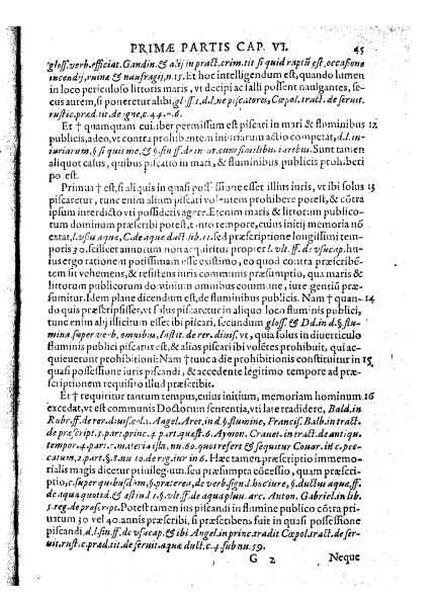 PRIMÆ PARTIS CAP. VI. 45
gloss. verb. efficiat. Gandin. & alij in pract. crim. tit. si quid raptũ est, occasione
incendij, ruinæ & naufragij, n. 15. Et hoc intelligendum est, quando lumen
in loco periculoso littoris maris, vt decipi ac falli possent nauigantes, se-
cus autem, si poneretur alibi, gl. ss. s. d. l. ne piscatores, Cœpol. tract. de seruit.
rustic. præd. tit. de igne, c. 44. n. 6.
Et † quamquam cuilibet permissum est piscari in mari & fluminibus 12
publicis, adeo, vt contra prohibentem iniuriarum actio competat, d. l. in-
iuriarum, § si quis me, & § fin. ff. de iniur. cum similibus iuribus. Sunt tamen
aliquot casus, quibus piscatio in mari, & fluminibus publicis prohiberi
potest.
Primus † est, si aliquis in quasi possessione esset illius iuris, vt ibi solus 13
piscaretur, tunc enim alium piscari volentem prohibere potest, & cõtra
ipsum interdicto vti possidetis agere. Etenim maris & littorum publico-
rum dominum præscribi potest, tanto tempore, cuius initij memoria nō
extat, l. vsu aque, C. de aque duct. lib. 11. sed præscriptione longissimi tem-
poris 30. scilicet annorum non acquiritur proper l. vlt. ff. de vsucap. hu-
ius ergo rationem potissimam esse existimo, eo quod contra præscribẽ-
tem sit vehemens, & resistens iuris communis præsumptio, qua maris &
littorum publicorum dominium commune, iure gentiũ præ-
sumitur. Idem plane dicendum est, de fluminibus publicis. Nam † quan- 14
do quis præscripsisset, vt solus piscaretur in aliquo loco fluminis publici,
tunc enim alij illicitum esset ibi piscari, secundum gloss. & Dd. in d. § flu-
mina super verb. omnibus, Instit. de rer. diuis. vt, qui solus in diuerticulo
fluminis publici piscatus est, & alios piscari ibi volẽtes prohibuit, qui ac-
quieuerunt prohibitioni: Nam † tunc a die prohibitionis constituitur in 15
quasi possessione iuris piscandi, & accedente legitimo tempore ad præ-
scriptionem requisito illud præscribit.
Et † requiritur tantum tempus, cuius initium, memoriam hominum 16
excedat, vt est communis Doctorum sententia, vti late tradidere, Bald. in
Rubr. ff. de rer. diuis. col. 2. Angel. Aret. in d. §. flumina, Francis. Balb. in tract.
de præscript. 5. part. princ. 4. part. quæst. 6. Aymon. Crauet. in tract. de antiqu.
tempor. 4. part. c. materia ista, nu. 60. quos refert & sequitur Couar. in c. pec-
catum, 2. part. §. 8. nu. 10. de reg. iur. in 6. Hæc tamen præscriptio immemo-
rialis magis dicetur priuilegium, seu præsumpta cõcessio, quam præscri-
ptio, c. super quibusdam, § præterea, de verb. sign. l. hoc iure, § ductus aquæ, ff.
de aqua quotid. & æstiu. l. 1. § vlt. ff. de aqua pluu. arc. Anton. Gabriel. in lib.
5. reg. de præscript. Potest tamen ius piscandi in flumine publico cõtra pri-
uatum 30 vel 40. annis præscribi, si præscribens fuit in quasi possessione
piscandi, d. l. fin. ff. de vsucap. & ibi Angel. in princ. tradit Cœpol. tract. de ser-
uit. rust. c. præd. tit. de seruit. aquæ duct. c. 4. sub nu. 59.
G 2 Neque